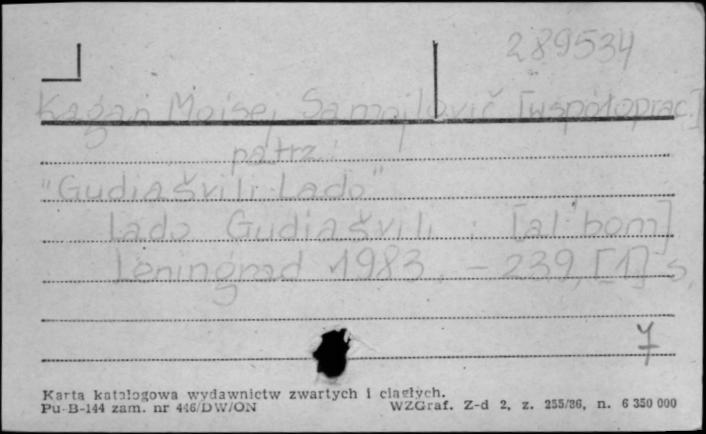 289534
Kagan Moisej Samojlovič [współoprac.]
patrz:
"Gudiašvili Lado"
Lado Gudiašvili : [al'bom]
Leningrad 1983. – 239, [1] s.
7
Karta katalogowa wydawnictw zwartych i ciągłych.
Pu-B-144 zam. nr 446/DW/ON WZGraf. Z-d 2, z. 255/86, n. 6 350 000